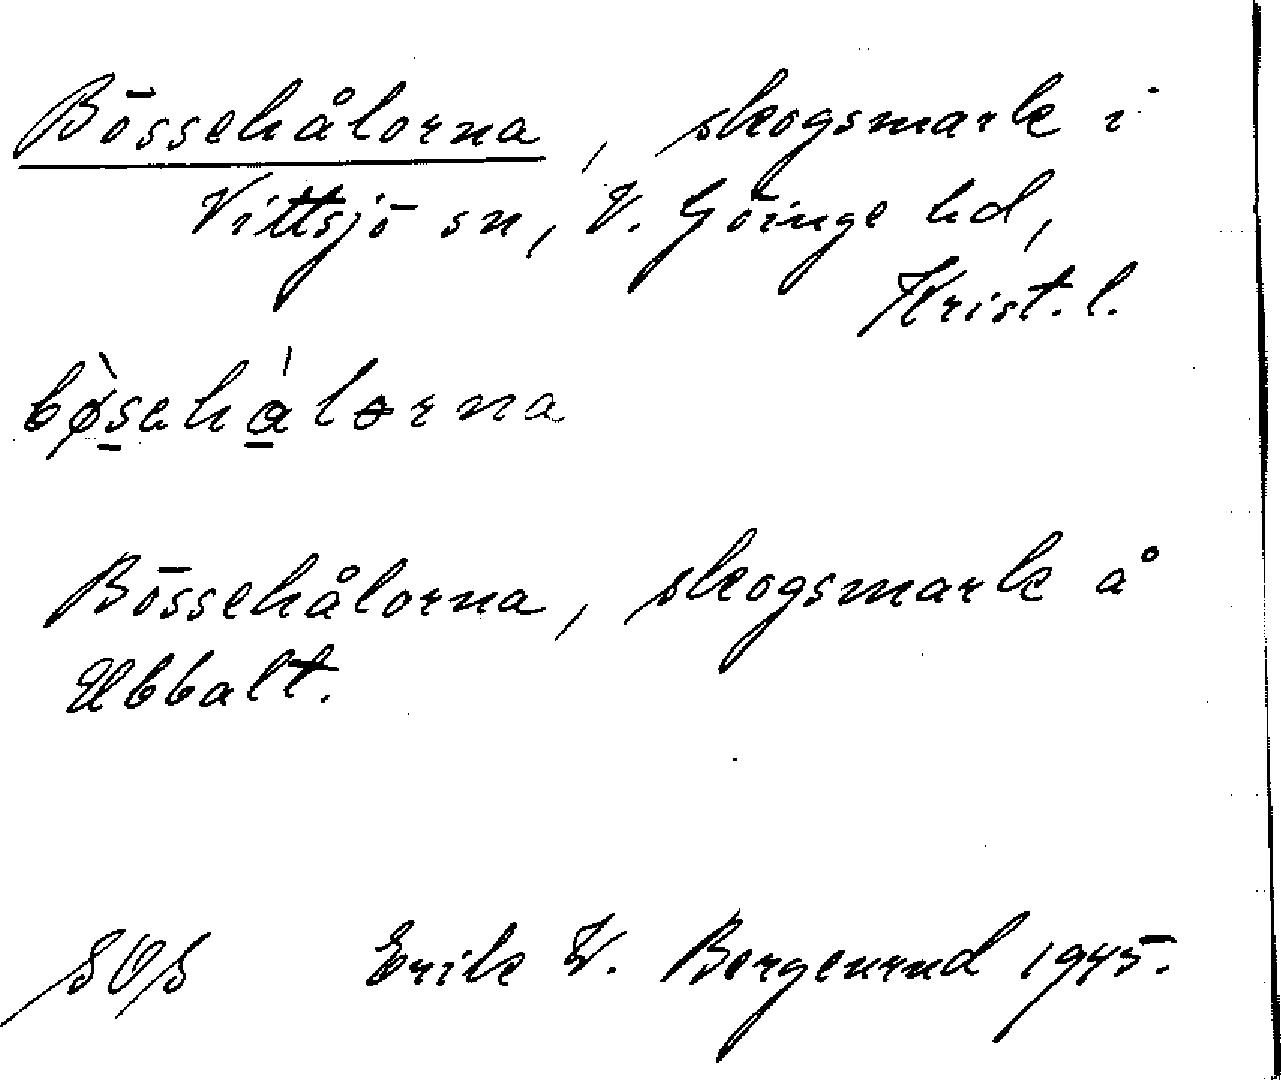 Bössehålorna, skogsmark i
Vittsjö sn, V. Göinge hd,
Krist. l.
bø̀sehálorna
Bössehålorna, skogsmark å
Ubbalt.
SOS Erik W. Bergenrud 1945.